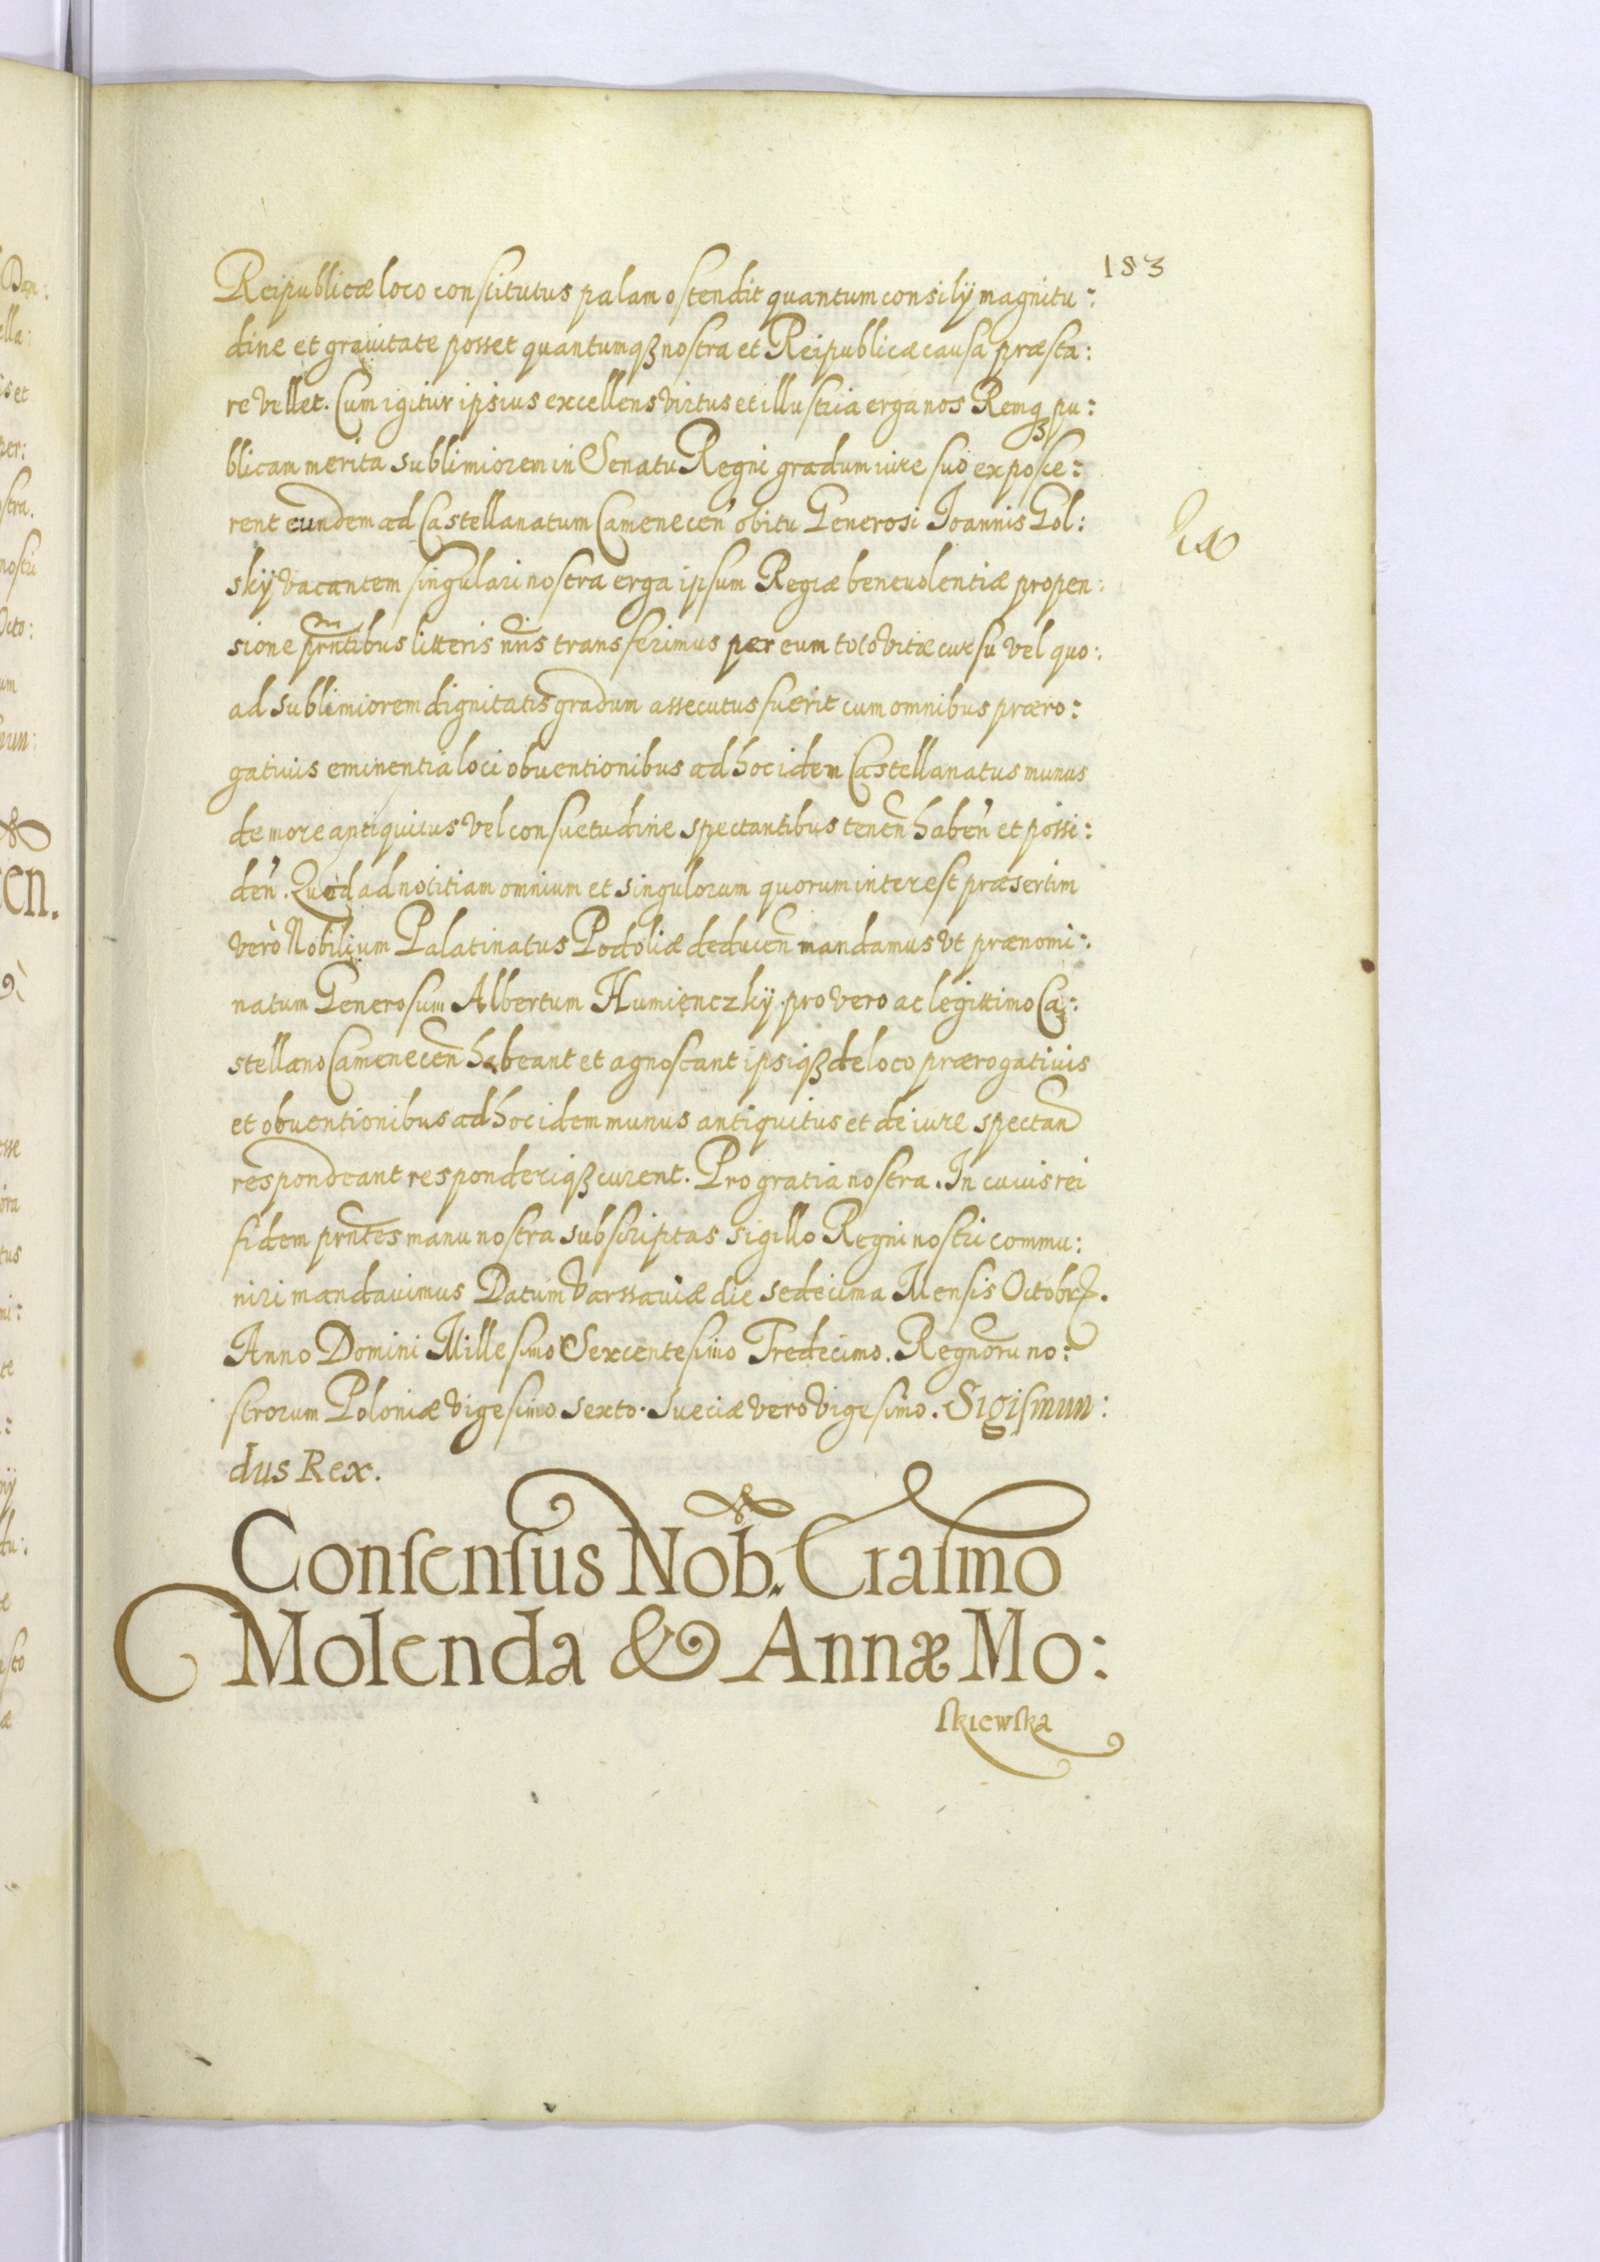 183
Reipublicæ loco constitutus palam ostendit quantum consilÿ magnitu:
dine et grauitate posset quantumqꝫ nostra et Reipublicæ causa præsta:
re vellet. Cum igitur ipsius excellens virtus et illustria erga nos Remqꝫ pu:
blicam merita sublimiorem in Senatu Regni gradum iure suo exposce:
rent eundem ad Castellanatum Camenecen̄ obitu Generosi Joannis Gol:
skÿ vacantem singulari nostra erga ipsum Regiæ beneuolentiæ propen:
sione pr̄ntibus litteris nr̄is transferimus per eum toto vitæ cursu vel quo:
ad sublimiorem dignitatis gradum assecutus fuerit cum omnibus præro:
gatiuis eminentia loci obuentionibus ad hoc idem Castellanatus munus
de more antiquitus vel consuetudine spectantibus tenen̄ haben̄ et possi:
den̄. Quod ad notitiam omnium et singulorum quorum interest præsertim
verò Nobilium Palatinatus Podoliæ deducen̄ mandamus vt prænomi:
natum Generosum Albertum Humięnczkÿ pro vero ac legittimo Ca:
stellano Camenecen̄ habeant et agnoscant ipsiqꝫ de loco prærogatiuis
et obuentionibus ad hoc idem munus antiquitus et de iure spectan̄
respondeant responderiqꝫ curent. Pro gratia nostra. In cuius rei
fidem pr̄ntes manu nostra subscriptas sigillo Regni nostri commu:
niri mandauimus Datum Varssauiæ die sedecima Mensis Octobrꝭ.
Anno Domini Millesimo Sexcentesimo Tredecimo. Regnorū no:
strorum Poloniæ vigesimo sexto. Sueciæ vero vigesimo. Sigismun:
dus Rex.
Consensus Nob. Erasmo
Molenda & Annæ Mo:
skiewska